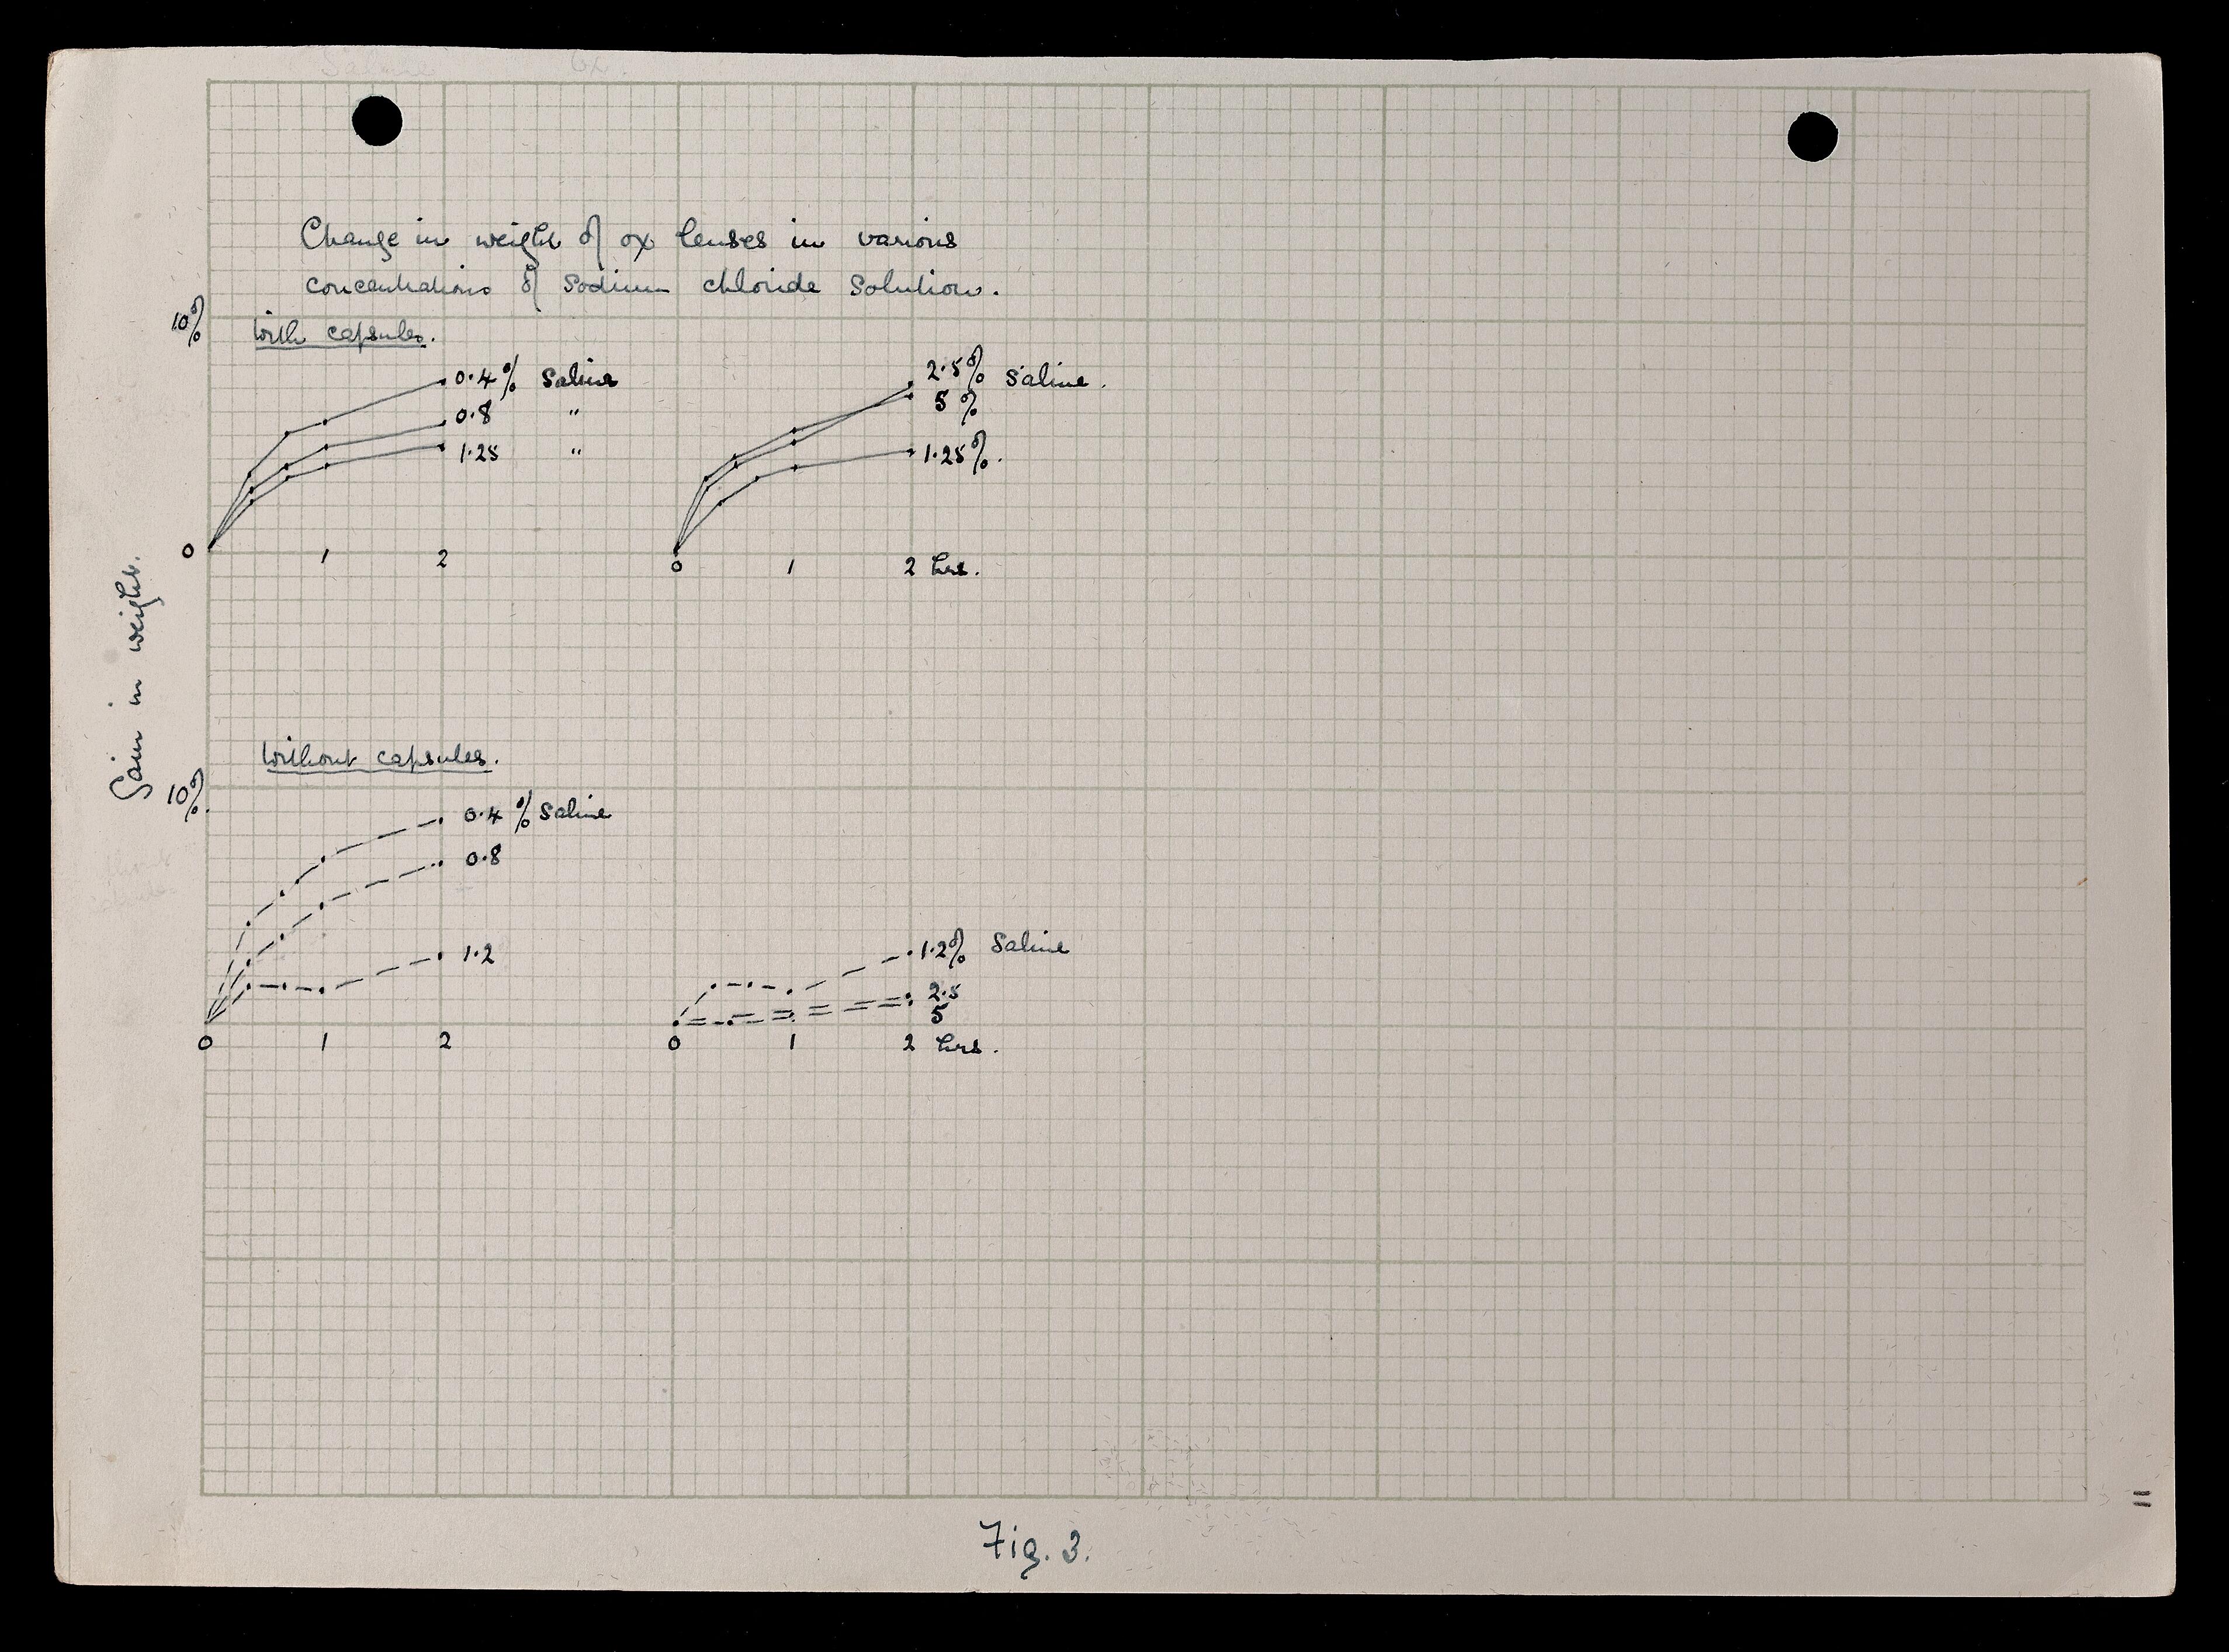 Change in weight of ox lenses in various
concentrations of sodium chloride solution.
10%
With capsules.
0.4% Saline
0.8 "
1.25 "
0
1
2
2.5% Saline.
5%
1.25%.
0
1
2 hrs.
Gain in weight.
Without capsules.
10%.
0.4% Saline
0.8
1.2
0
1
2
1.2% Saline
2.5
5
0
1
2 hrs.
Fig. 3.